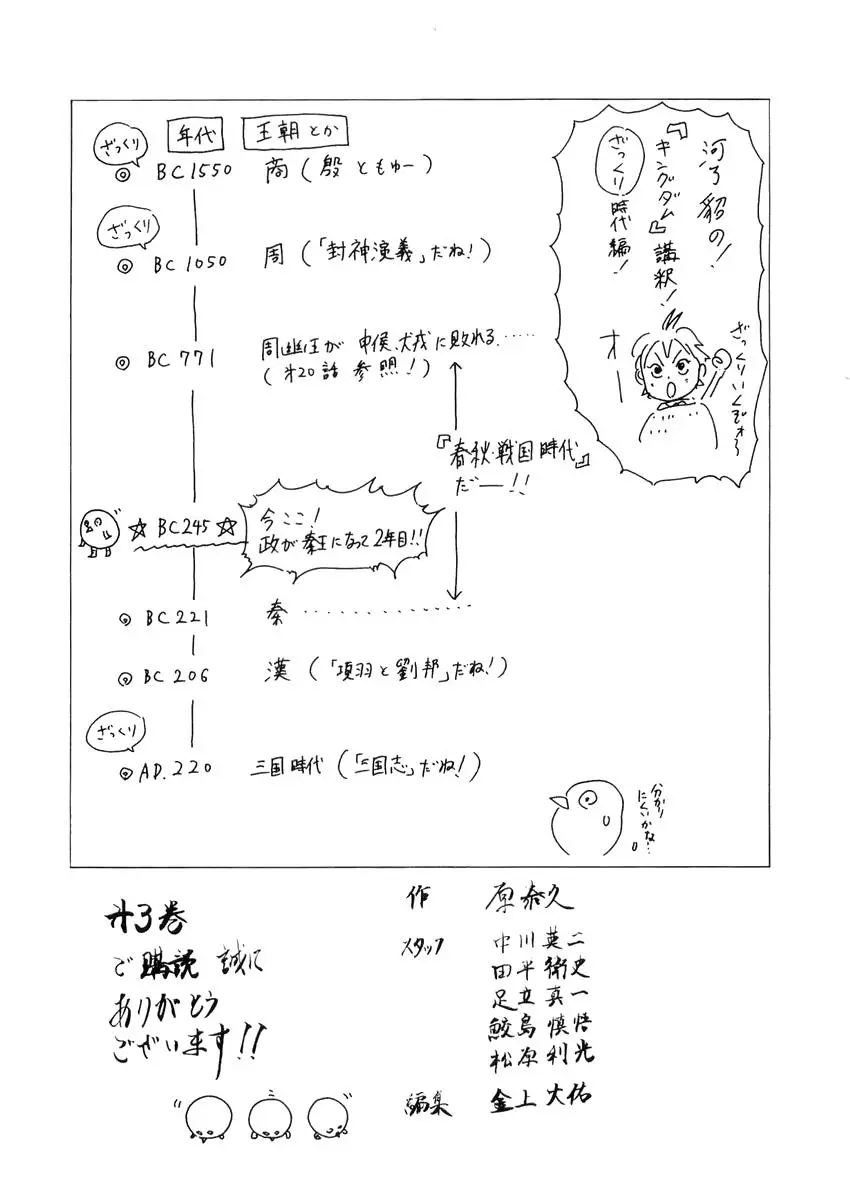 河了貂の!
『キングダム』講釈!
ざっくり時代編!
ざっくりいくぞォ〜
オー
年代 王朝とか
ざっくり
BC1550 商(殷ともゆー)
ざっくり
BC1050 周(「封神演義」だね!)
BC771 周幽王が申侯、犬戎に敗れる……
(才20話参照!)
『春秋・戦国時代』
だー!!
☆BC245☆ 今ここ!
政が秦王になって2年目!!
BC221 秦……………
BC206 漢(「項羽と劉邦」だね!)
ざっくり
AD.220 三国時代(「三国志」だね!)
分かり
にくいかな…
才3巻
ご購読 誠に
ありがとう
ございます!!
作 原泰久
スタッフ 中川英二
田平衛史
足立真一
鮫島慎悟
松原利光
編集 金上大佑